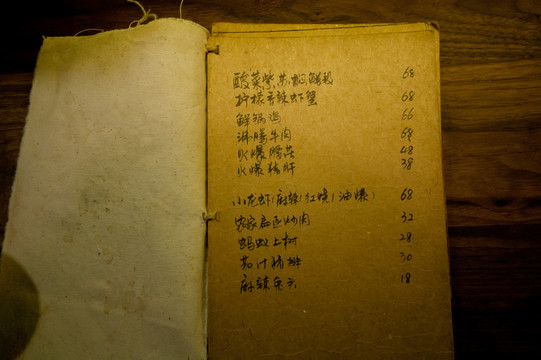 酸菜紫苏焖鲜鲍 68
柠檬香辣虾蟹 68
鲜锅鸡 66
沸腾牛肉 68
火爆腰花 48
火爆猪肝 38
小龙虾(麻辣/红烧/油爆) 68
农家扁豆炒肉 32
蚂蚁上树 28
茄汁猪排 30
麻辣兔头 18